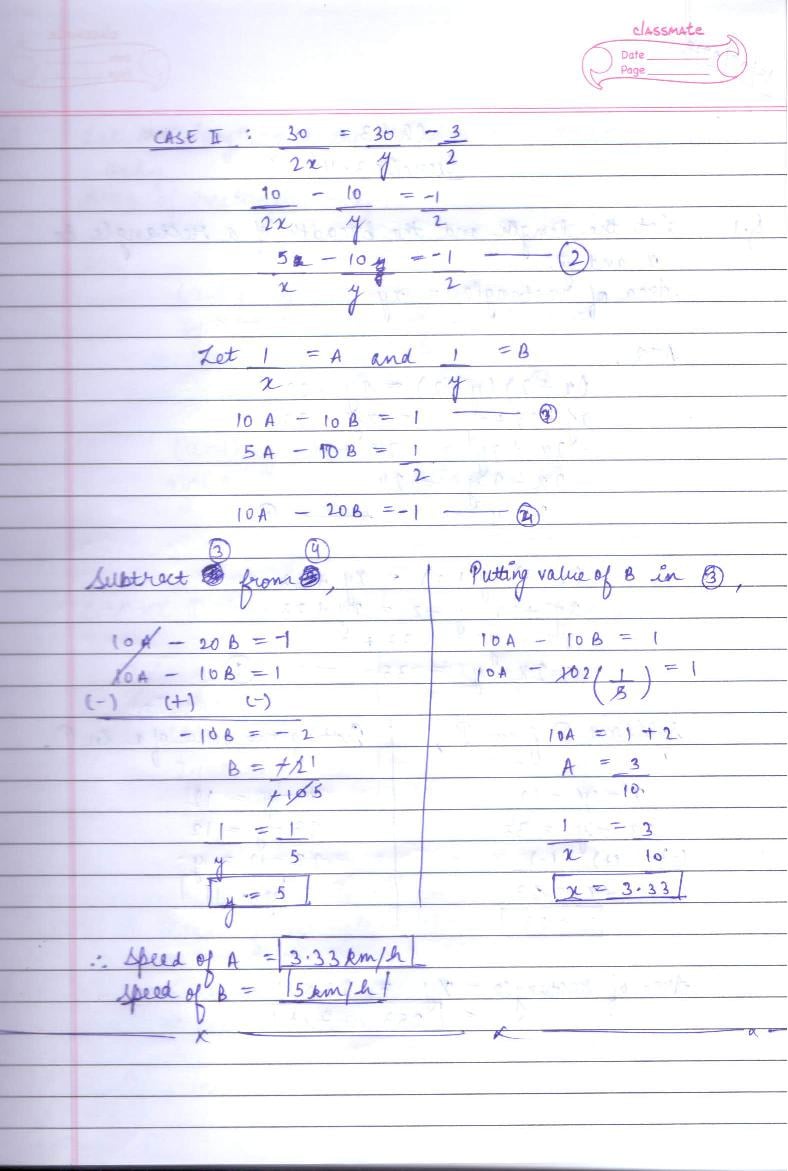 classmate
Date
Page
CASE II : 30/2x = 30/y - 3/2
10/2x - 10/y = -1/2
5/x - 10/y = -1/2 —— ②
Let 1/x = A and 1/y = B
10A - 10B = 1 —— ③
5A - 10B = 1/2
10A - 20B = -1 —— ④
Subtract ③ from ④,
10A - 20B = -1
10A - 10B = 1
(-) (+) (-)
-10B = -2
B = +21/+105
1/y = 1/5
y = 5
Putting value of B in ③,
10A - 10B = 1
10A - 102(1/5) = 1
10A = 1 + 2
A = 3/10
1/x = 3/10
x = 3.33
∴ Speed of A = 3.33 km/h
Speed of B = 5 km/h
x x x